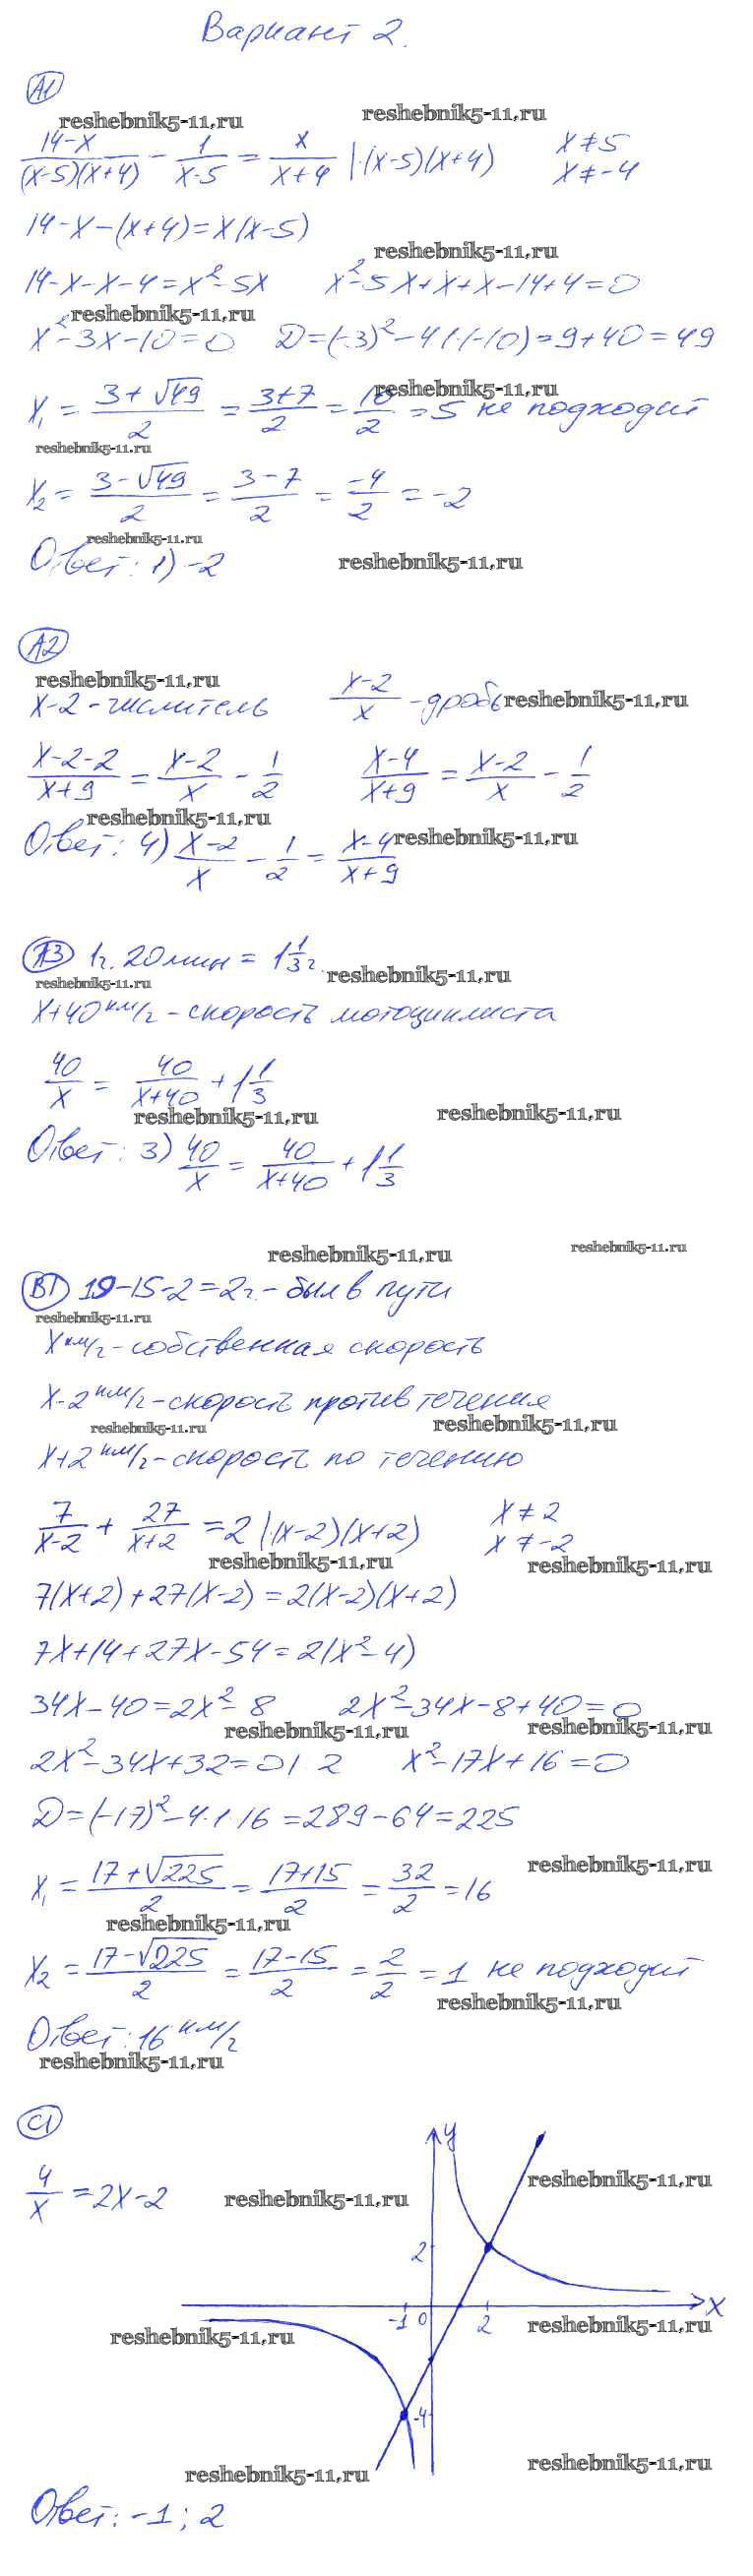 Вариант 2.
А1
reshebnik5-11.ru reshebnik5-11.ru
(14-x)/((x-5)(x+4)) - 1/(x-5) = x/(x+4) |·(x-5)(x+4) x≠5
x≠-4
14-x-(x+4)=x(x-5)
reshebnik5-11.ru
14-x-x-4=x²-5x x²-5x+x+x-14+4=0
reshebnik5-11.ru
x²-3x-10=0 D=(-3)²-4·1·(-10)=9+40=49
reshebnik5-11.ru
x₁ = (3+√49)/2 = (3+7)/2 = 10/2 = 5 не подходит
reshebnik5-11.ru
x₂ = (3-√49)/2 = (3-7)/2 = -4/2 = -2
reshebnik5-11.ru
Ответ: 1) -2 reshebnik5-11.ru
А2
reshebnik5-11.ru
x-2 - числитель (x-2)/x - дробь reshebnik5-11.ru
(x-2-2)/(x+9) = (x-2)/x - 1/2 (x-4)/(x+9) = (x-2)/x - 1/2
reshebnik5-11.ru
Ответ: 4) (x-2)/x - 1/2 = (x-4)/(x+9) reshebnik5-11.ru
А3 1ч. 20мин = 1 1/3 ч.
reshebnik5-11.ru reshebnik5-11.ru
x+40 км/ч - скорость мотоциклиста
40/x = 40/(x+40) + 1 1/3
reshebnik5-11.ru reshebnik5-11.ru
Ответ: 3) 40/x = 40/(x+40) + 1 1/3
reshebnik5-11.ru reshebnik5-11.ru
В1 19-15-2=2ч. - был в пути
reshebnik5-11.ru
x км/ч - собственная скорость
x-2 км/ч - скорость против течения
reshebnik5-11.ru reshebnik5-11.ru
x+2 км/ч - скорость по течению
7/(x-2) + 27/(x+2) = 2 |·(x-2)(x+2) x≠2
x≠-2
reshebnik5-11.ru reshebnik5-11.ru
7(x+2)+27(x-2)=2(x-2)(x+2)
7x+14+27x-54=2(x²-4)
34x-40=2x²-8 2x²-34x-8+40=0
reshebnik5-11.ru reshebnik5-11.ru
2x²-34x+32=0 |:2 x²-17x+16=0
D=(-17)²-4·1·16=289-64=225
reshebnik5-11.ru
x₁ = (17+√225)/2 = (17+15)/2 = 32/2 = 16
reshebnik5-11.ru
x₂ = (17-√225)/2 = (17-15)/2 = 2/2 = 1 не подходит
reshebnik5-11.ru
Ответ: 16 км/ч
reshebnik5-11.ru
С1
y
4/x = 2x-2 reshebnik5-11.ru reshebnik5-11.ru
2
-1 0 2 x
reshebnik5-11.ru reshebnik5-11.ru
-4
reshebnik5-11.ru reshebnik5-11.ru
Ответ: -1; 2